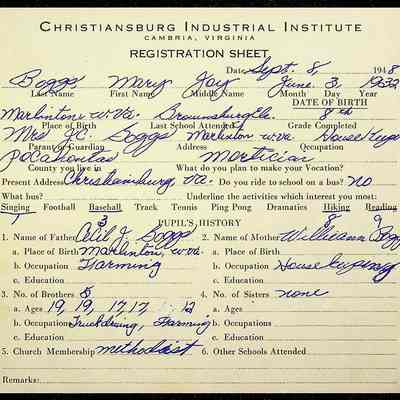 CHRISTIANSBURG INDUSTRIAL INSTITUTE
CAMBRIA, VIRGINIA
REGISTRATION SHEET
Date Sept. 8, 1948
Boggs Mary Joy June 3, 1932
Last Name First Name Middle Name Month Day Year
DATE OF BIRTH
Marlinton W. Va. Brownsburg Ele. 8th
Place of Birth Last School Attended Grade Completed
Mrs J.C. Boggs Marlinton W. Va
Parent or Guardian Address Occupation
Pocahontas Mortician
County you live in What do you plan to make your Vocation?
Present Address Christiansburg, Va. Do you ride to school on a bus? no
What bus? Underline the activities which interest you most:
Singing Football Baseball Track Tennis Ping Pong Dramatics Hiking Reading
3 8 9
PUPIL'S HISTORY
1. Name of Father J Boggs 2. Name of Mother Boggs
a. Place of Birth Marlinton, W. Va. a. Place of Birth
b. Occupation Farming b. Occupation
c. Education c. Education
3. No. of Brothers 5 4. No. of Sisters none
a. Ages 19, 19, 17, 17, 12 a. Ages
b. Occupation Truckdriving, Farming b. Occupation
c. Education c. Education
5. Church Membership methodist 6. Other Schools Attended
Remarks: